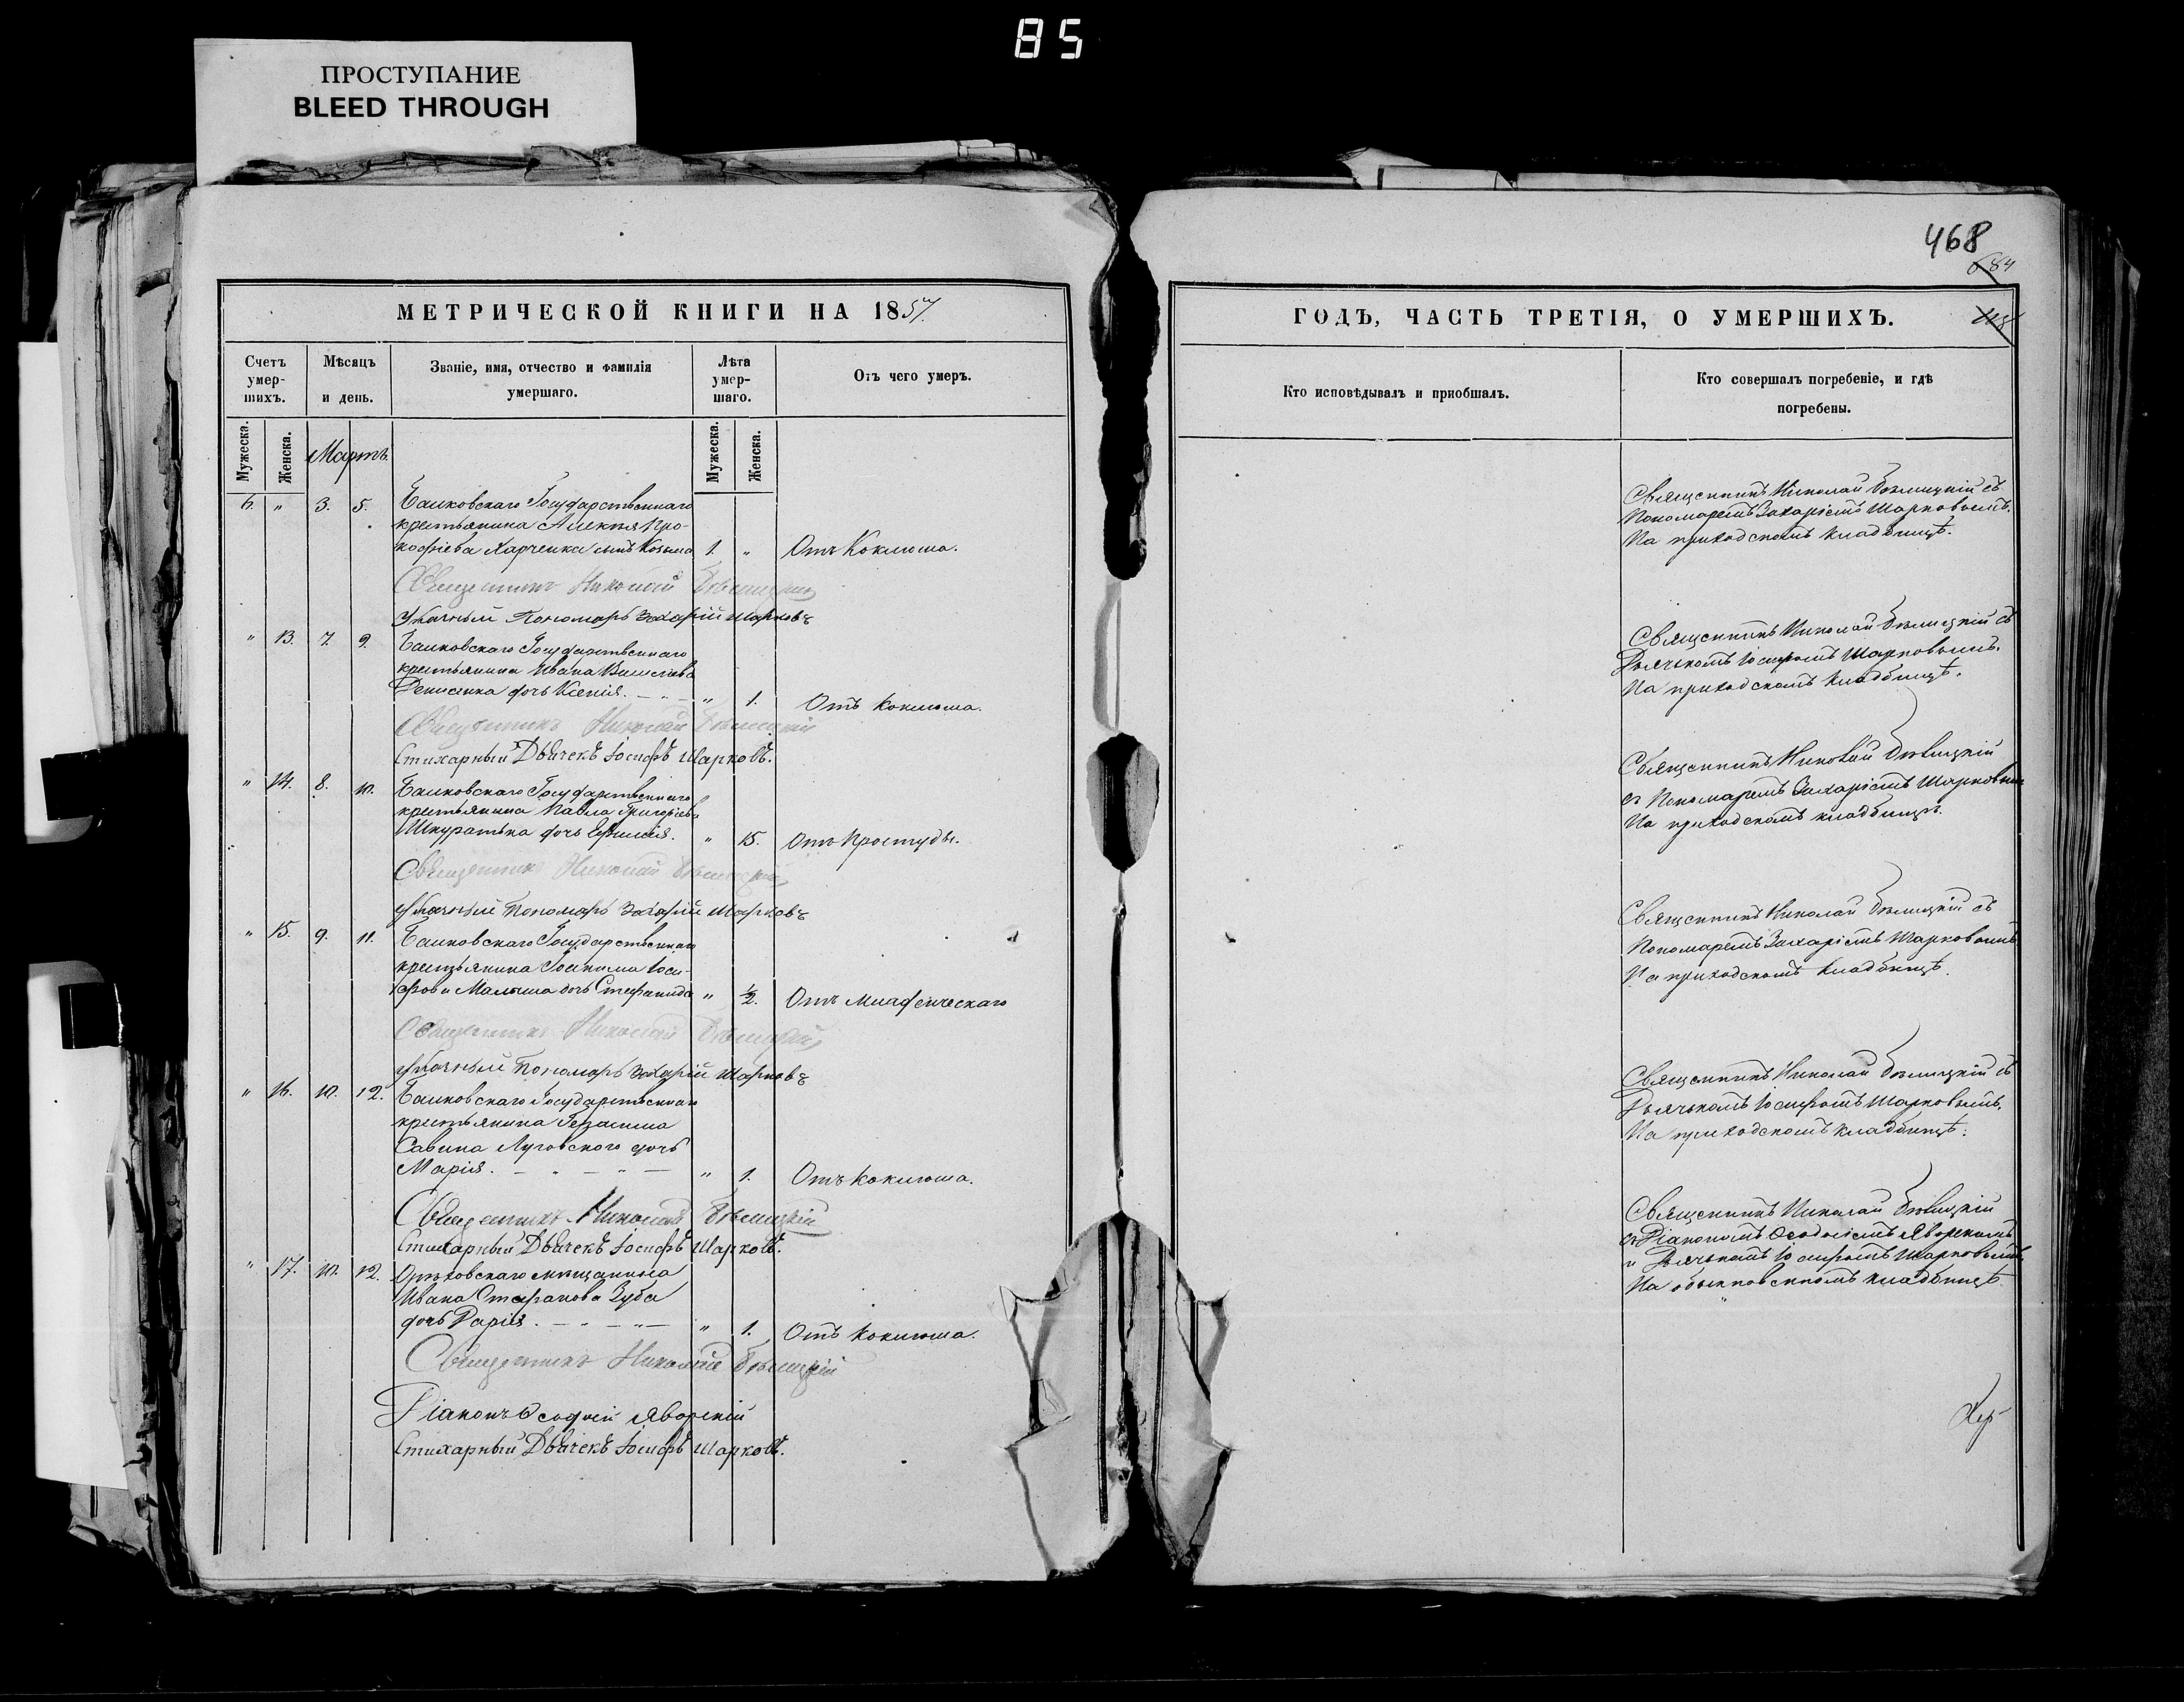 85
ПРОСТУПАНИЕ
BLEED THROUGH
468
684
МЕТРИЧЕСКОЙ КНИГИ НА 1857.
Счетъ умер-
шихъ.
Мѣсяцъ
и день.
Званіе, имя, отчество и фамилія
умершаго.
Лѣта
умер-
шаго.
Отъ чего умеръ.
Мужеска.
Женска.
Мартъ.
Мужеска.
Женска.
6. " 3. 5. Государственнаго
крестьянина Алексѣя Про-
кофіева Харченка сынъ Козьма 1. " Отъ Коклюша.
Священникъ Николай Бѣлицкій
Пономарь Захарій Шарковъ
" 13. 7. 9. Государственнаго
крестьянина Ивана
Денисенка дочь Ксенія. " 1. Отъ Коклюша.
Священникъ Николай Бѣлицкій
Стихарный Дьячекъ Іосифъ Шарковъ.
" 14. 8. 10. Государственнаго
крестьянина Павла Григоріева
Шкуратька дочь Евфимія. " 15. Отъ Простуды.
Священникъ Николай Бѣлицкій
Пономарь Захарій Шарковъ
" 15. 9. 11. Государственнаго
крестьянина Іоакима Іоси-
фова Малыша дочь Стефанида " ½. Отъ Младенческаго
Священникъ Николай Бѣлицкій
Пономарь Захарій Шарковъ
" 16. 10. 12. Государственнаго
крестьянина Герасима
Савина Луговского дочь
Марія. " 1. Отъ Коклюша.
Священникъ Николай Бѣлицкій
Стихарный Дьячекъ Іосифъ Шарковъ.
" 17. 10. 12. Орѣховскаго мѣщанина
Ивана Стефанова Зуба
дочь Дарія. " 1. Отъ Коклюша.
Священникъ Николай Бѣлицкій
Діаконъ Ѳеодосій Яворскій
Стихарный Дьячекъ Іосифъ Шарковъ.
ГОДЪ, ЧАСТЬ ТРЕТІЯ, О УМЕРШИХЪ.
Кто исповѣдывалъ и пріобщалъ.
Кто совершалъ погребеніе, и гдѣ
погребены.
Священникъ Николай Бѣлицкій съ
Пономаремъ Захаріемъ Шарковымъ.
На приходскомъ кладбищѣ.
Священникъ Николай Бѣлицкій съ
Дьячкомъ Іосифомъ Шарковымъ.
На приходскомъ кладбищѣ.
Священникъ Николай Бѣлицкій
съ Пономаремъ Захаріемъ Шарковымъ
На приходскомъ кладбищѣ.
Священникъ Николай Бѣлицкій съ
Пономаремъ Захаріемъ Шарковымъ
На приходскомъ кладбищѣ.
Священникъ Николай Бѣлицкій съ
Дьячкомъ Іосифомъ Шарковымъ.
На приходскомъ кладбищѣ.
Священникъ Николай Бѣлицкій
съ Діакономъ Ѳеодосіемъ Яворскимъ
и Дьячкомъ Іосифомъ Шарковымъ
На обыкновенномъ кладбищѣ